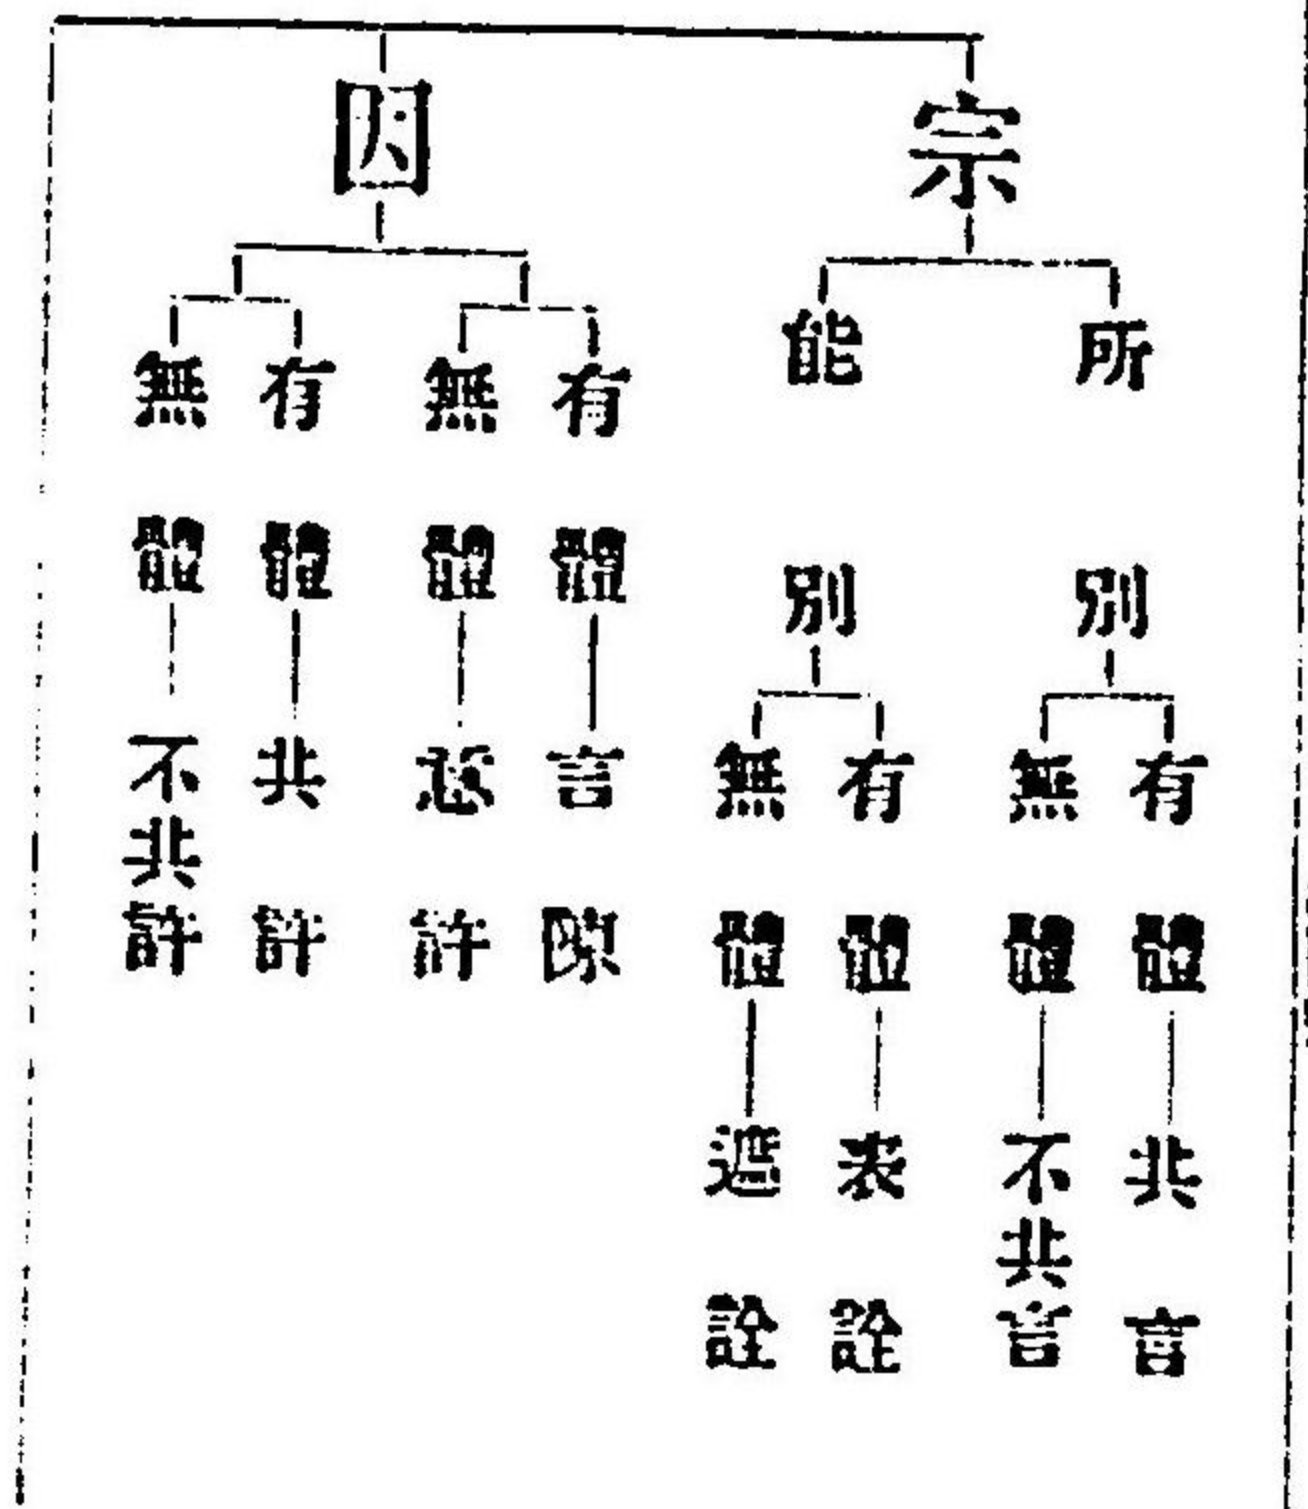 宗
所別
有體
共言
無體
不共言
能別
有體
表詮
無體
遮詮
因
有體
言陳
無體
許
有體
共許
無體
不共許